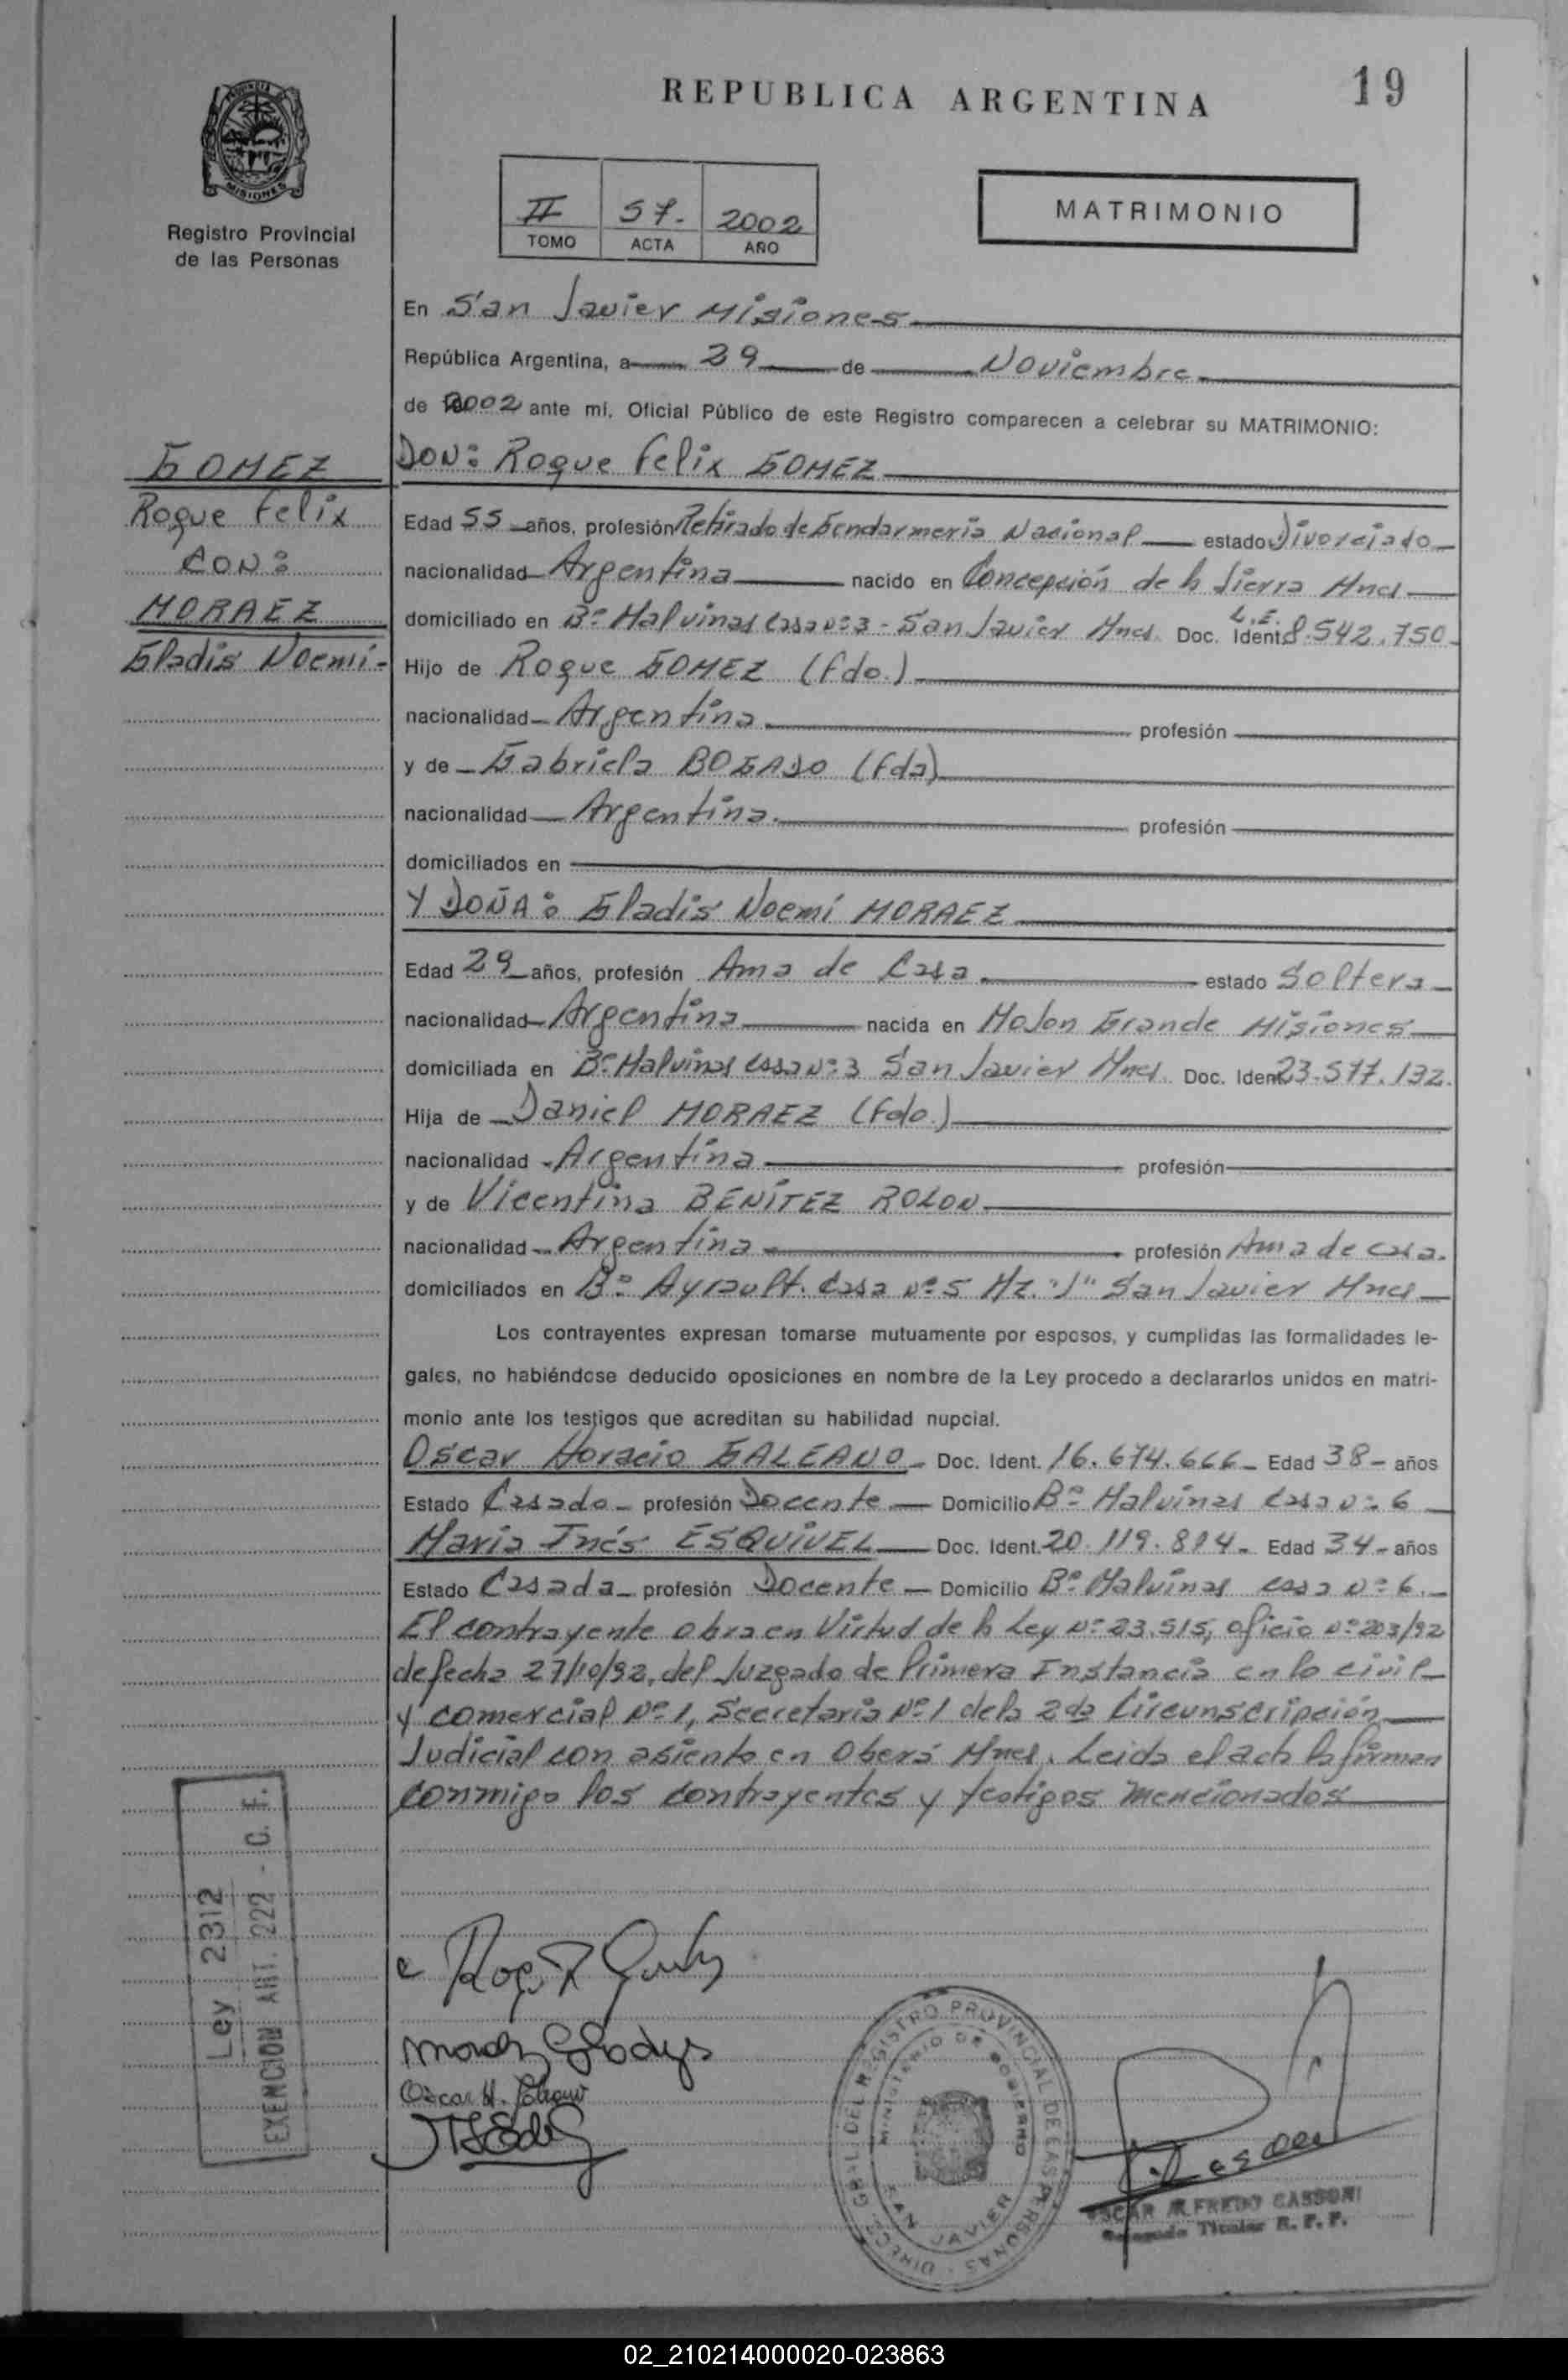 REPUBLICA ARGENTINA
19
PROVINCIA DE MISIONES
Registro Provincial
de las Personas
II 57. 2002
TOMO ACTA AÑO
MATRIMONIO
En San Javier Misiones
República Argentina, a 29 de Noviembre
de 2002 ante mí, Oficial Público de este Registro comparecen a celebrar su MATRIMONIO:
GOMEZ
Roque Felix
CON:
MORAEZ
Gladis Noemí-
DON: Roque Felix GOMEZ
Edad 55 años, profesión Retirado de Gendarmeria Nacional estado Divorciado
nacionalidad Argentina nacido en Concepción de la Sierra Mnes
domiciliado en B° Malvinas Casa N° 3 - San Javier Mnes. Doc. Ident. L.E. 8.542.750
Hijo de Roque GOMEZ (fdo.)
nacionalidad Argentina profesión
y de Gabriela BOGADO (fda)
nacionalidad Argentina. profesión
domiciliados en
Y DOÑA: Gladis Noemí MORAEZ
Edad 29 años, profesión Ama de Casa estado Soltera
nacionalidad Argentina nacida en Mojon Grande Misiones
domiciliada en B° Malvinas Casa N° 3 San Javier Mnes. Doc. Iden 23.577.132.
Hija de Daniel MORAEZ (Fdo.)
nacionalidad Argentina profesión
y de Vicentina BENÍTEZ ROLON
nacionalidad Argentina profesión Ama de casa.
domiciliados en B° Ayrault. Casa N° 5 Mz. "J" San Javier Mnes
Los contrayentes expresan tomarse mutuamente por esposos, y cumplidas las formalidades le-
gales, no habiéndose deducido oposiciones en nombre de la Ley procedo a declararlos unidos en matri-
monio ante los testigos que acreditan su habilidad nupcial.
Oscar Horacio GALEANO Doc. Ident. 16.674.666 Edad 38 años
Estado Casado profesión Docente Domicilio B° Malvinas Casa N° 6
Maria Inés ESQUIVEL Doc. Ident. 20.119.814. Edad 34 años
Estado Casada profesión Docente Domicilio B° Malvinas casa N° 6.
El contrayente obra en Virtud de la Ley N° 23.515, oficio N° 203/92
de fecha 27/10/92, del Juzgado de Primera Instancia en lo civil
y comercial N° 1, Secretaria N° 1 de la 2da Circunscripción
Judicial con asiento en Oberá Mnes. Leida el acta la firman
conmigo los contrayentes y testigos mencionados
Ley 2312
EXENCION ART. 222 - C. F.
Moraez Gladys
Oscar H. Galeano
DIRECC. GRAL. DEL REGISTRO PROVINCIAL DE LAS PERSONAS
MINISTERIO DE GOBIERNO
SAN JAVIER
OSCAR ALFREDO CASSONI
Delegado Titular R. P. P.
02_210214000020-023863